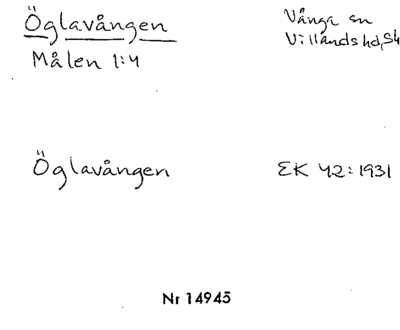 Öglavången
Målen 1:4
Vånga sn
Villands hd, Sk
Öglavången
EK 42:1931
Nr 14945